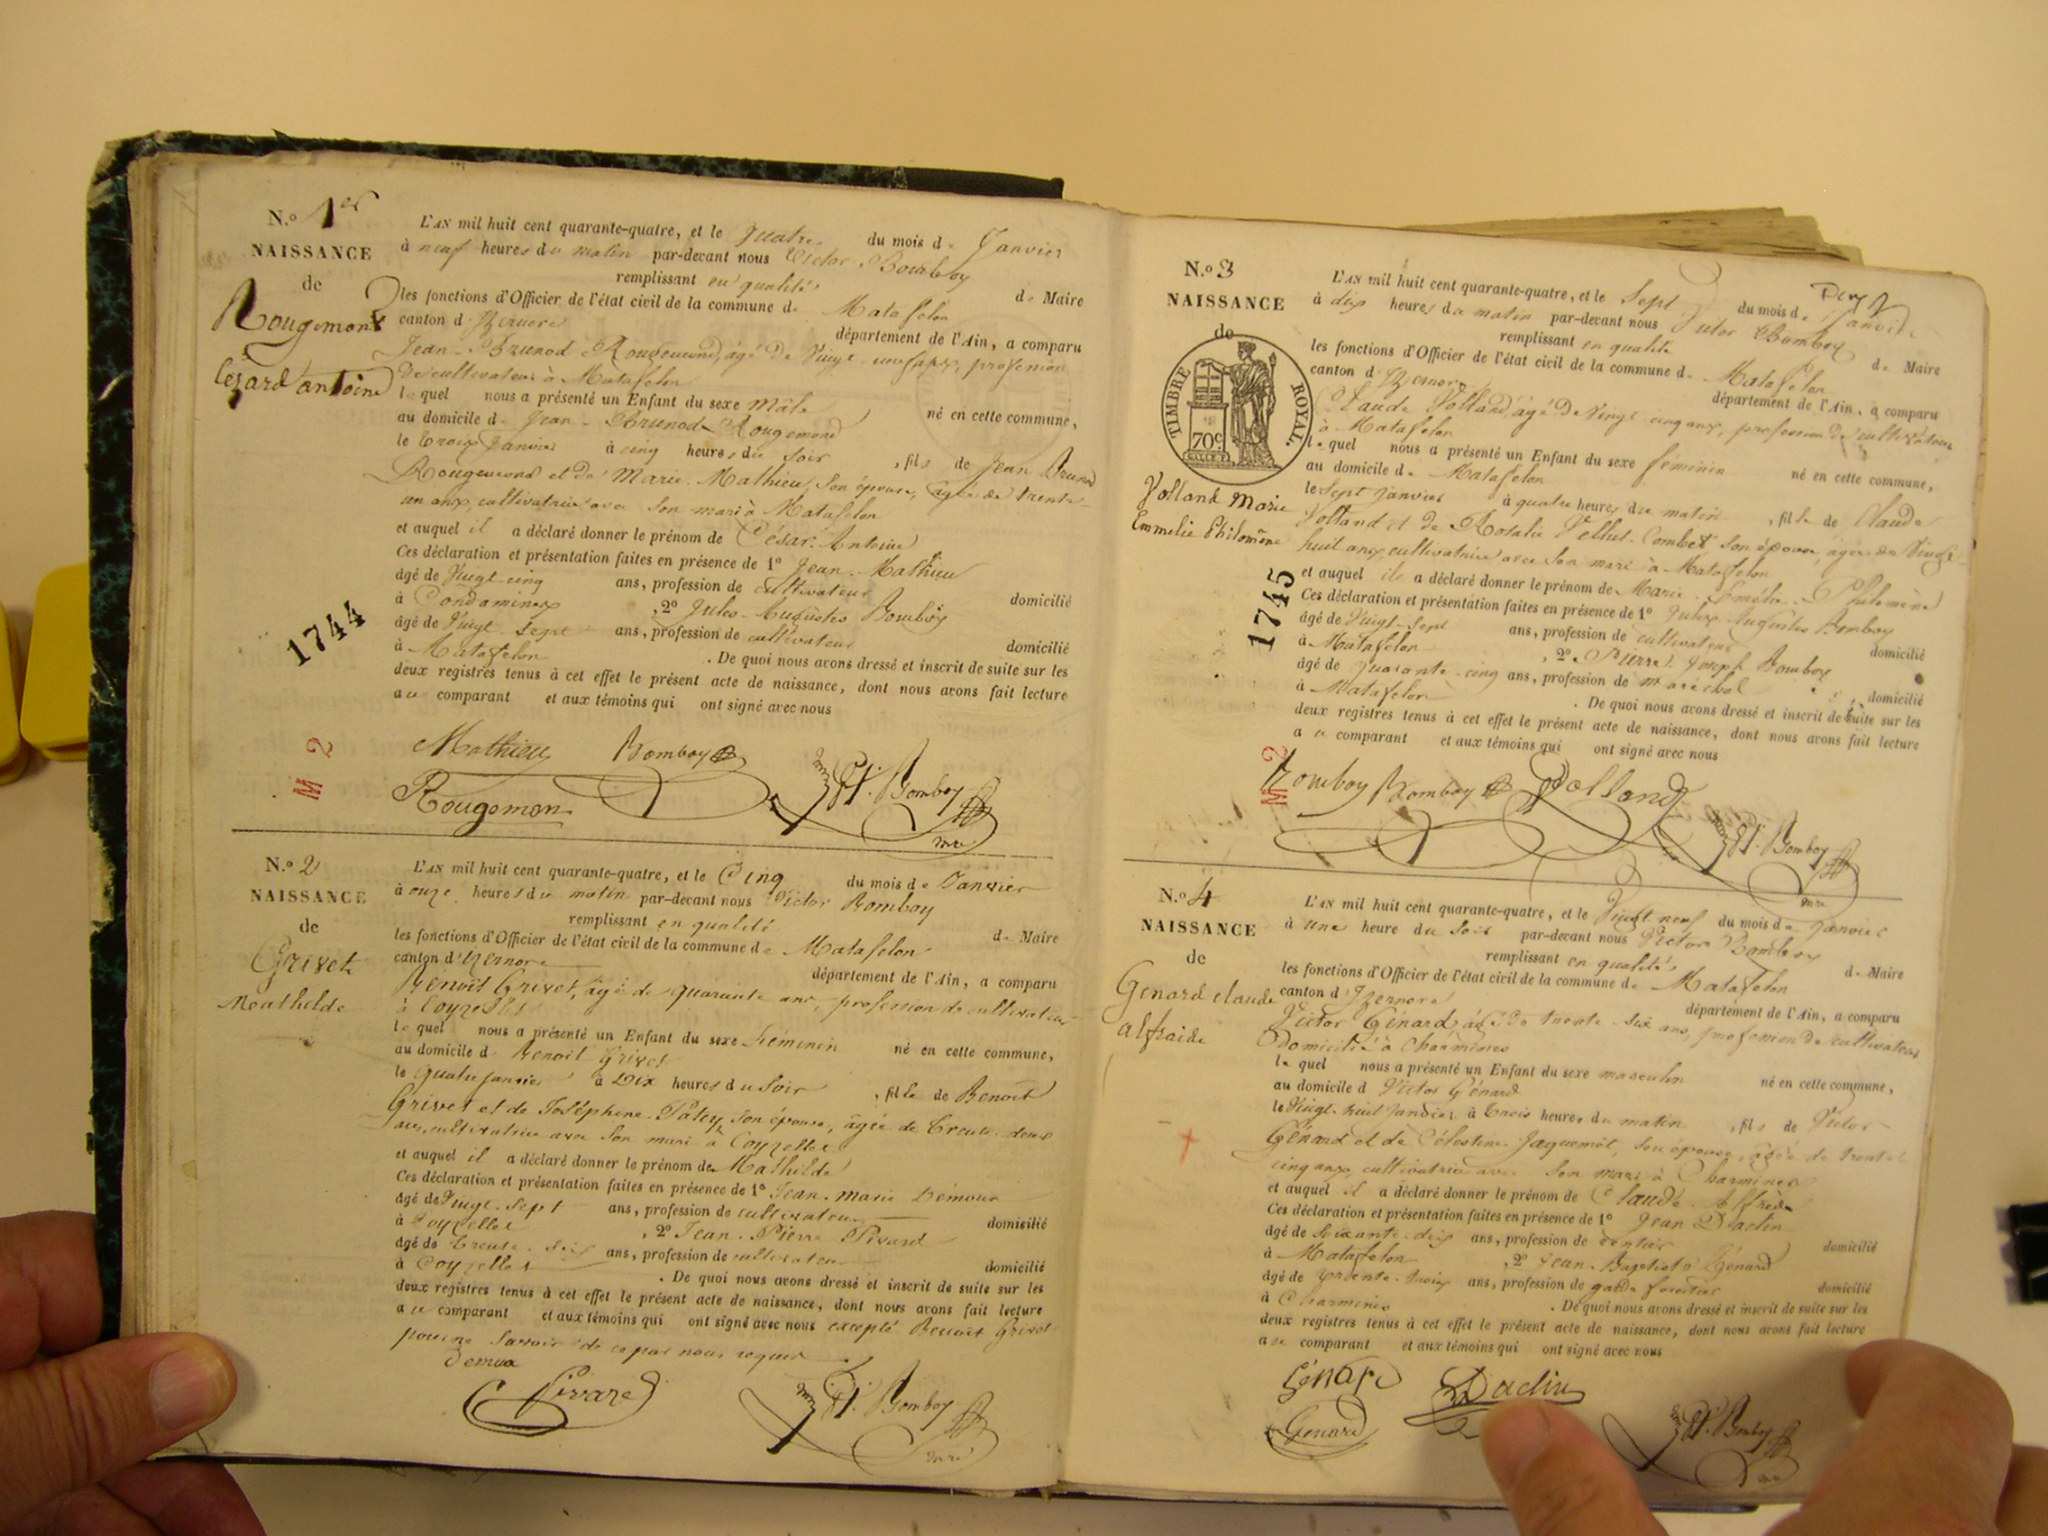 N.º 1er
NAISSANCE
de
Rougemont
César antoine
1744
M 2
L'AN mil huit cent quarante-quatre, et le quatre du mois de Janvier
à neuf heures du matin par-devant nous Victor Bomboy
remplissant en qualité de Maire
les fonctions d'Officier de l'état civil de la commune de Matafelon
canton d'Izernore département de l'Ain, a comparu
Jean-Brunod Rougemond, âgé de Vingt-neuf ans, profession
de cultivateur à Matafelon
lequel nous a présenté un Enfant du sexe mâle né en cette commune,
au domicile de Jean-Brunod Rougemond
le trois Janvier à cinq heures du soir, fils de Jean Brunod
Rougemond et de Marie Mathieu, son épouse, âgée de trente-
un ans, cultivatrice avec son mari à Matafelon
et auquel il a déclaré donner le prénom de César-Antoine
Ces déclaration et présentation faites en présence de 1º Jean-Mathieu
âgé de Vingt-cinq ans, profession de cultivateur domicilié
à Condamines, 2º Jules-Augustes Bomboy
âgé de Vingt-sept ans, profession de cultivateur domicilié
à Matafelon. De quoi nous avons dressé et inscrit de suite sur les
deux registres tenus à cet effet le présent acte de naissance, dont nous avons fait lecture
au comparant et aux témoins qui ont signé avec nous
Mathieu Bomboy Vr. Bomboy
Rougemon mre
N.º 2
NAISSANCE
de
Grivet
Mathilde
L'AN mil huit cent quarante-quatre, et le Cinq du mois de Janvier
à onze heures du matin par-devant nous Victor Bomboy
remplissant en qualité de Maire
les fonctions d'Officier de l'état civil de la commune de Matafelon
canton d'Izernore département de l'Ain, a comparu
Benoît Grivet, âgé de quarante ans, profession de cultivateur
à Coyzelles
lequel nous a présenté un Enfant du sexe féminin né en cette commune,
au domicile de Benoît Grivet
le quatre janvier à Dix heures du soir, fille de Benoît
Grivet et de Joséphine Patey, son épouse, âgée de trente-deux
ans, cultivatrice avec son mari à Coyzelles
et auquel il a déclaré donner le prénom de Mathilde
Ces déclaration et présentation faites en présence de 1º Jean-marie Démour
âgé de Vingt-sept ans, profession de cultivateur domicilié
à Coyzelles, 2º Jean-Pierre Pivard
âgé de trente-six ans, profession de cultivateur domicilié
à Coyzelles. De quoi nous avons dressé et inscrit de suite sur les
deux registres tenus à cet effet le présent acte de naissance, dont nous avons fait lecture
au comparant et aux témoins qui ont signé avec nous excepté Benoît Grivet
pour ne savoir de ce par nous requis
Demua
Pivard Vr. Bomboy
mre
N.º 3
NAISSANCE
de
TIMBRE ROYAL
70c
Volland Marie
Emmelie Philomène
1745
M 2
L'AN mil huit cent quarante-quatre, et le Sept du mois de Janvier
à dix heures du matin par-devant nous Victor Bomboy
remplissant en qualité de Maire
les fonctions d'Officier de l'état civil de la commune de Matafelon
canton d'Izernore département de l'Ain, a comparu
Claude Volland, âgé de Vingt-cinq ans, profession de cultivateur
à Matafelon
lequel nous a présenté un Enfant du sexe féminin né en cette commune,
au domicile de Matafelon
le sept janvier à quatre heures du matin, fille de Claude
Volland et de Rosalie Vellut-Combet son épouse, âgée de Vingt-
huit ans, cultivatrice avec son mari à Matafelon
et auquel il a déclaré donner le prénom de Marie-Emélie-Philomène
Ces déclaration et présentation faites en présence de 1º Jules Augustes Bomboy
âgé de Vingt-sept ans, profession de cultivateur domicilié
à Matafelon, 2º Pierre Joseph Bomboy
âgé de quarante-cinq ans, profession de maréchal domicilié
à Matafelon. De quoi nous avons dressé et inscrit de suite sur les
deux registres tenus à cet effet le présent acte de naissance, dont nous avons fait lecture
au comparant et aux témoins qui ont signé avec nous
Bomboy Bomboy Volland
Vr. Bomboy
mre
N.º 4
NAISSANCE
de
Génard claude
alfraide
L'AN mil huit cent quarante-quatre, et le Vingt neuf du mois de Janvier
à une heure du soir par-devant nous Victor Bomboy
remplissant en qualité de Maire
les fonctions d'Officier de l'état civil de la commune de Matafelon
canton d'Izernore département de l'Ain, a comparu
Victor Génard, âgé de trente-six ans, profession de cultivateur
Domicilié à Charmines
lequel nous a présenté un Enfant du sexe masculin né en cette commune,
au domicile de Victor Génard
le Vingt-huit Janvier à trois heures du matin, fils de Victor
Génard et de Célestine Jaquemet, son épouse, âgée de trente
cinq ans, cultivatrice avec son mari à Charmines
et auquel il a déclaré donner le prénom de Claude-Alfrède
Ces déclaration et présentation faites en présence de 1º Jean Daclin
âgé de soixante-dix ans, profession de rentier domicilié
à Matafelon, 2º Jean-Baptiste Génard
âgé de trente-trois ans, profession de garde forestier domicilié
à Charmines. De quoi nous avons dressé et inscrit de suite sur les
deux registres tenus à cet effet le présent acte de naissance, dont nous avons fait lecture
au comparant et aux témoins qui ont signé avec nous
Génard Daclin
Génard Vr. Bomboy
mre